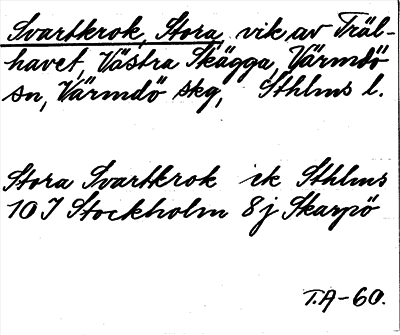 Svartkrok, Stora, vik av Träl-
havet, Västra Skägga, Värmdö
sn, Värmdö skg, Sthlms l.
Stora Svartkrok ek Sthlms
10 I Stockholm 8j Skarpö
T.A-60.